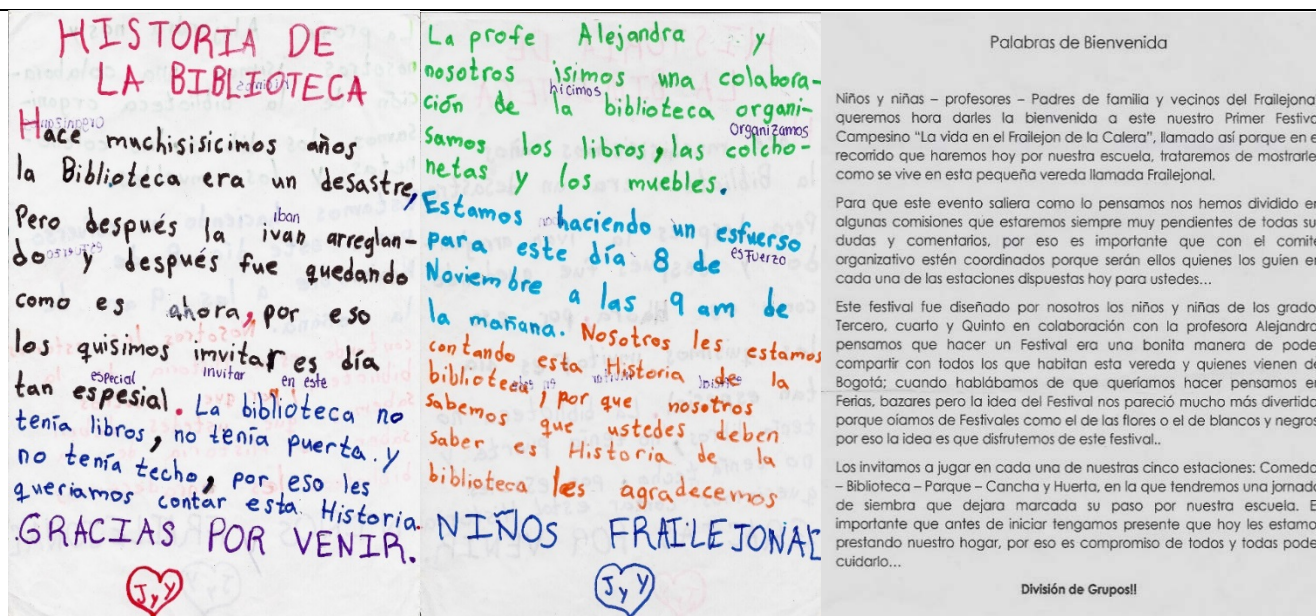 HISTORIA DE
LA BIBLIOTECA
Hace muchisisicimos años
la Biblioteca era un desastre,
iban
Pero después la ivan arreglan-
do y después fue quedando
como es ahora, por eso
los quisimos imvitar es día
especial invitar en este
tan espesial. La biblioteca no
tenía libros, no tenía puerta y
no tenía techo, por eso les
queriamos contar esta Historia.
GRACIAS POR VENIR.
J y Y
La profe Alejandra y
nosotros isimos una colabora-
hicimos
ción de la biblioteca organi-
organizamos
samos los libros, las colcho-
netas y los muebles.
Estamos haciendo un esfuerso
esfuerzo
para este día 8 de
Noviembre a las 9 am de
la mañana. Nosotros les estamos
contando esta Historia de la
biblioteca, por que nosotros
sabemos que ustedes deben
saber es Historia de la
biblioteca les agradecemos
NIÑOS FRAILEJONAL
J y Y
Palabras de Bienvenida
Niños y niñas – profesores – Padres de familia y vecinos del Frailejona
queremos hora darles la bienvenida a este nuestro Primer Festiva
Campesino "La vida en el Frailejon de la Calera", llamado así porque en e
recorrido que haremos hoy por nuestra escuela, trataremos de mostrarle
como se vive en esta pequeña vereda llamada Frailejonal.
Para que este evento saliera como lo pensamos nos hemos dividido en
algunas comisiones que estaremos siempre muy pendientes de todas su
dudas y comentarios, por eso es importante que con el comité
organizativo estén coordinados porque serán ellos quienes los guíen en
cada una de las estaciones dispuestas hoy para ustedes...
Este festival fue diseñado por nosotros los niños y niñas de los grado
Tercero, cuarto y Quinto en colaboración con la profesora Alejandra
pensamos que hacer un Festival era una bonita manera de pode
compartir con todos los que habitan esta vereda y quienes vienen de
Bogotá; cuando hablábamos de que queríamos hacer pensamos en
Ferias, bazares pero la idea del Festival nos pareció mucho más divertida
porque oíamos de Festivales como el de las flores o el de blancos y negros
por eso la idea es que disfrutemos de este festival..
Los invitamos a jugar en cada una de nuestras cinco estaciones: Comedo
– Biblioteca – Parque – Cancha y Huerta, en la que tendremos una jornada
de siembra que dejara marcada su paso por nuestra escuela. E
importante que antes de iniciar tengamos presente que hoy les estamo
prestando nuestro hogar, por eso es compromiso de todos y todas pode
cuidarlo...
División de Grupos!!